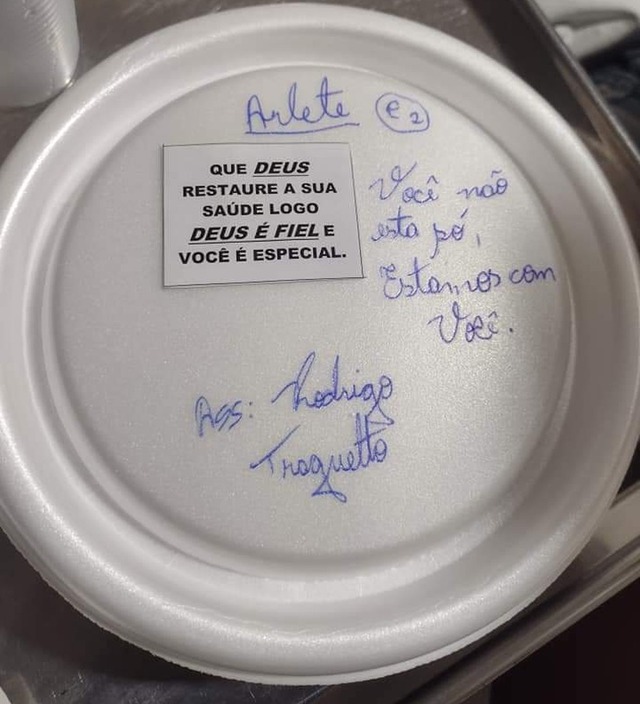 Arlete e2
QUE DEUS
RESTAURE A SUA
SAÚDE LOGO
DEUS É FIEL E
VOCÊ É ESPECIAL.
Você não
esta pó,
Estamos com
Você.
Ass: Rodrigo
Traquetto